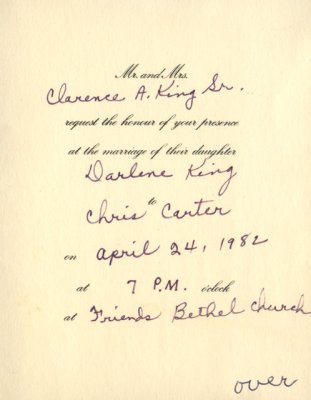 Mr. and Mrs.
Clarence A. King Sr.
request the honour of your presence
at the marriage of their daughter
Darlene King
to
Chris Carter
on April 24, 1982
at 7 P.M. o'clock
at Friends Bethel Church
over